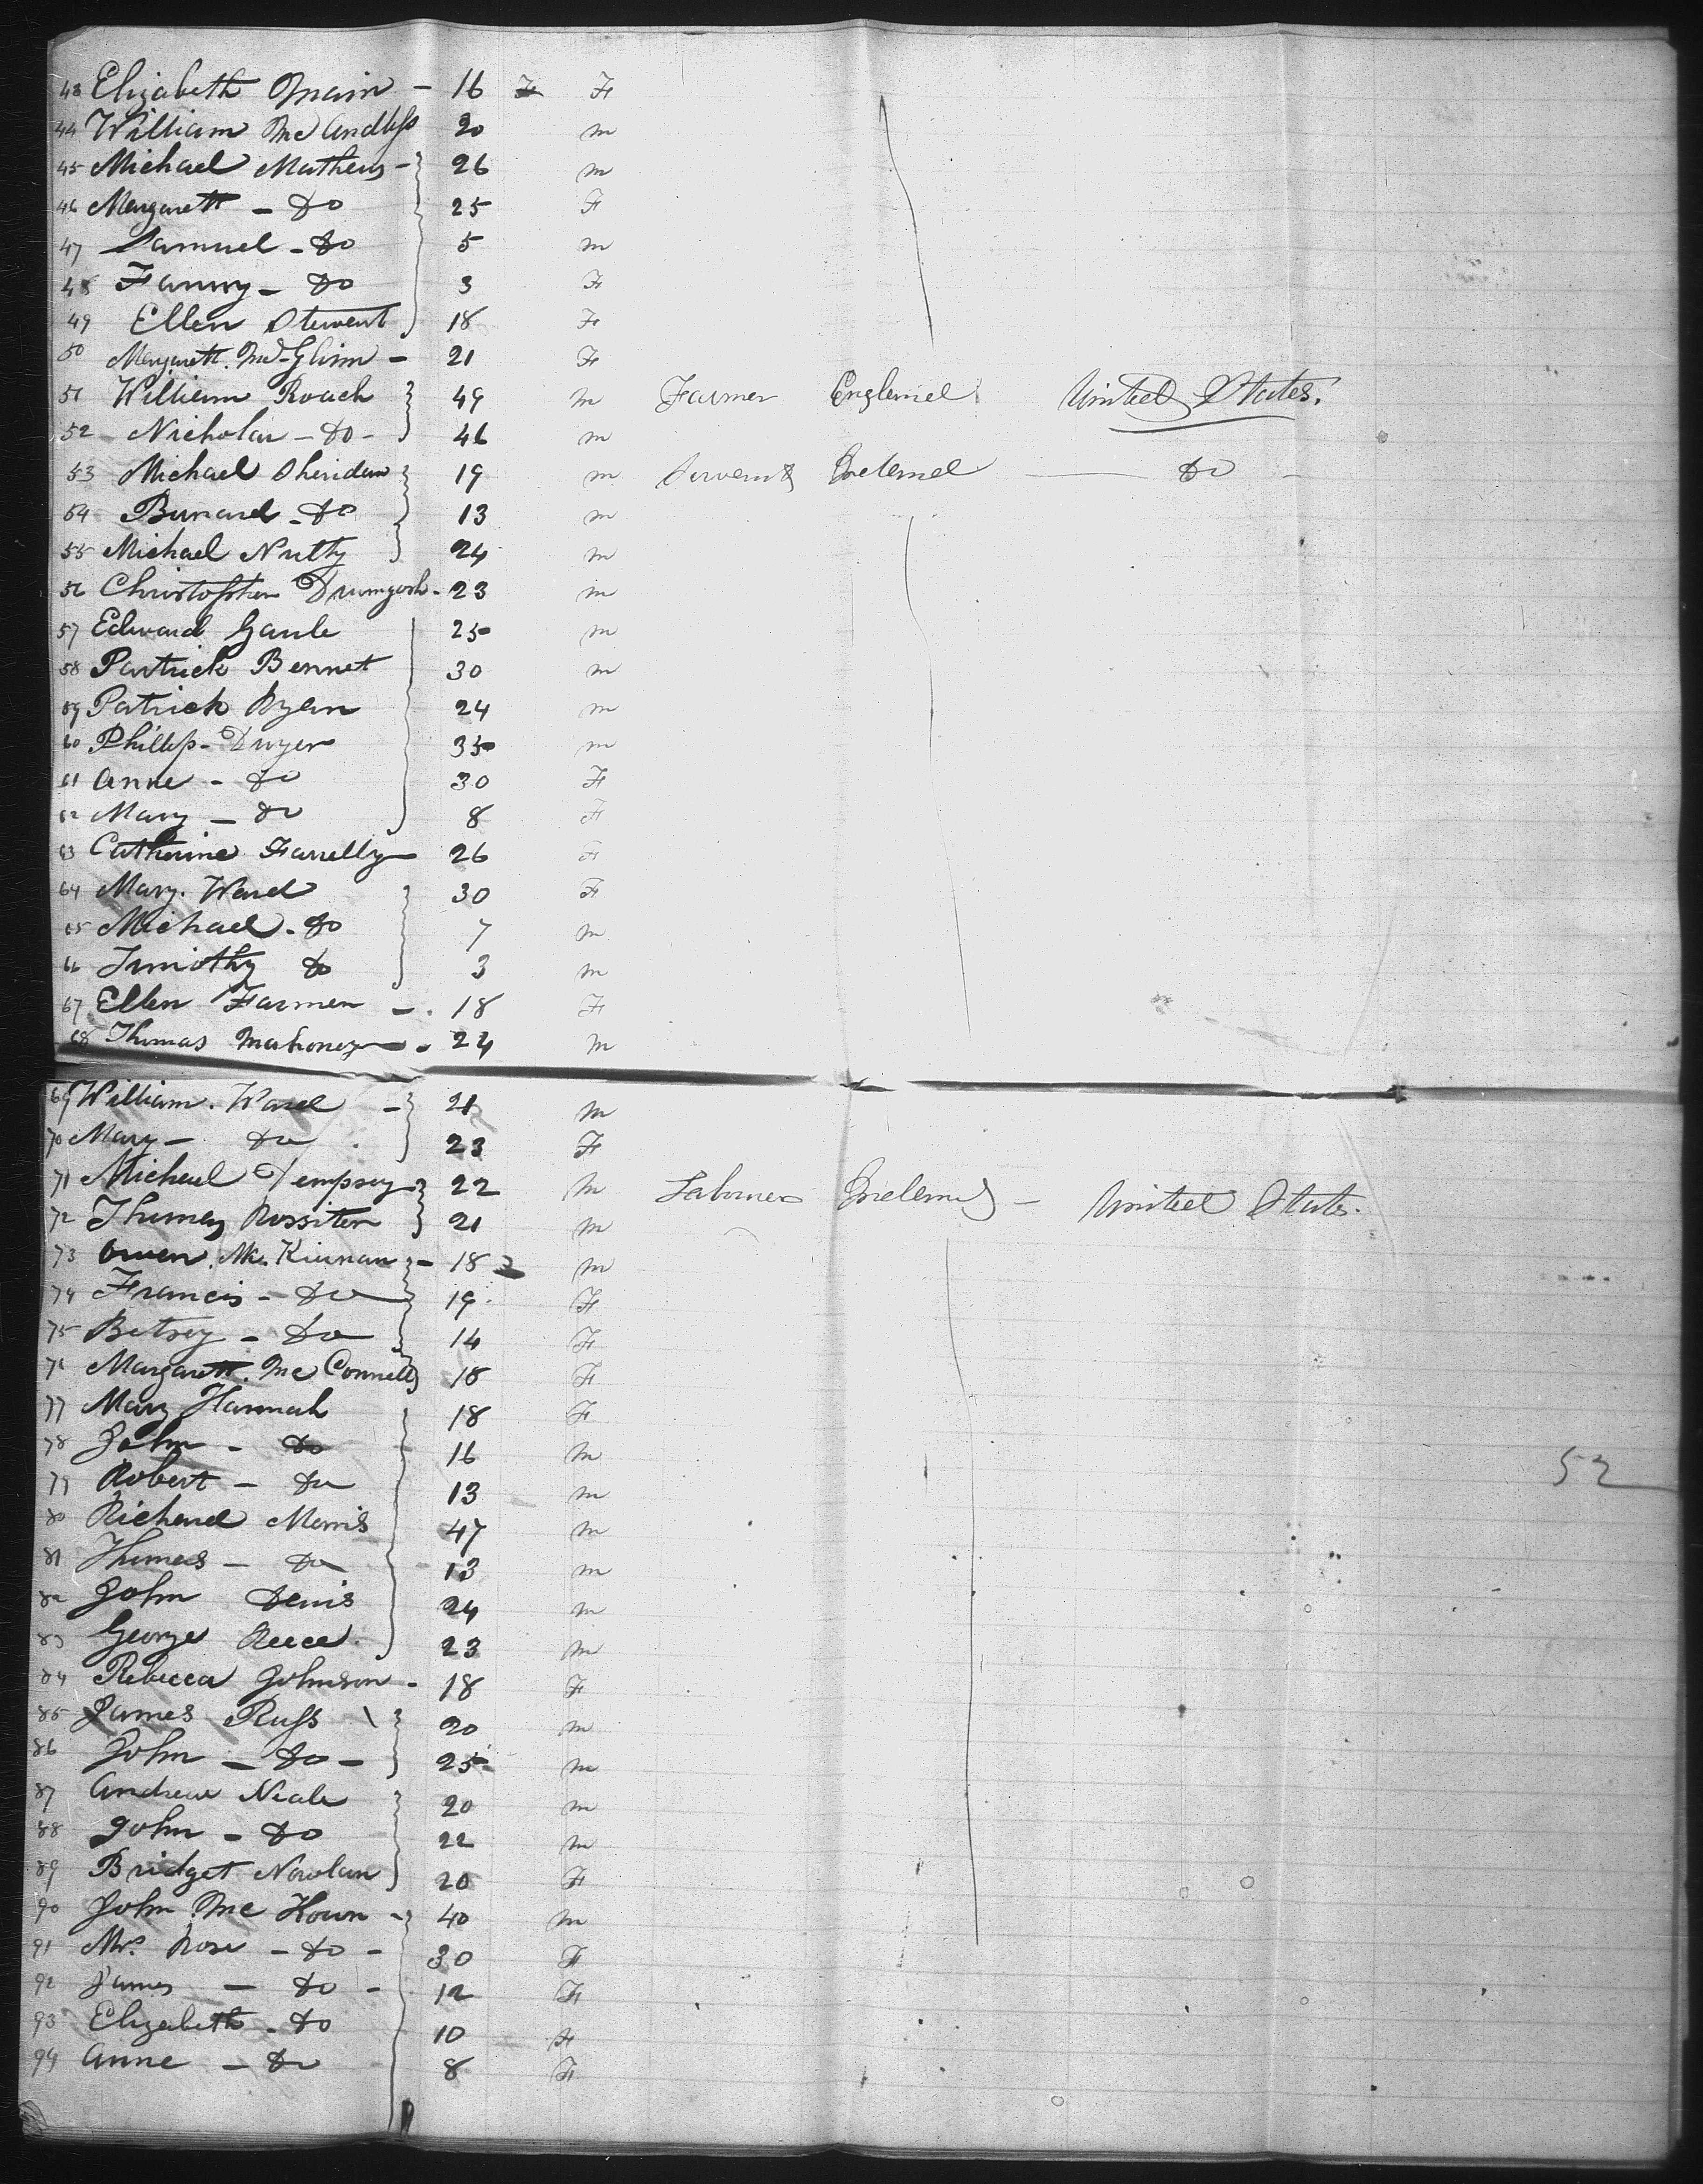 43 Elizabeth Spain - 16 F F
44 William McAndless 20 m
45 Michael Mathews - 26 m
46 Margarett - Do 25 F
47 Samuel - Do 5 m
48 Fanny - Do 3 F
49 Ellen Stewart 18 F
50 Margarett McGlinn - 21 F
51 William Roach 49 m Farmer England United States.
52 Nicholas - Do - 46 m
53 Michael Sheridan 19 m Servant Ireland Do
54 Bernard - Do 13 m
55 Michael Nutty 24 m
56 Christopher Drumgosh - 23 m
57 Edward Gaule 25 m
58 Partrick Bennet 30 m
59 Patrick Ryan 24 m
60 Phillip - Dwyer 35 m
61 Anne - Do 30 F
62 Mary - Do 8 F
63 Catherine Farrelly 26 F
64 Mary. Ward 30 F
65 Michael - Do 7 m
66 Timothy Do 3 m
67 Ellen Farmer - 18 F
68 Thomas Mahoney - 24 m
69 William. Ward - 21 m
70 Mary - Do 23 F
71 Michael Dempsey 22 m Labourer Ireland - United States.
72 Thomas Rossiter 21 m
73 Owen. Mc. Kiernan - 18 m
74 Francis - Do 19 F
75 Betsey - Do 14 F
76 Margarett. McConnell 18 F
77 Mary Hannah 18 F
78 John - Do 16 m
79 Robert - Do 13 m
80 Richard Morris 47 m
81 Thomas - Do 13 m
82 John Denis 24 m
83 George Reece. 23 m
84 Rebecca Johnson - 18 F
85 James Russ 20 m
86 John - Do - 25 m
87 Andrew Neale 20 m
88 John - Do 22 m
89 Bridget Nowlan 20 F
90 John McKown - 40 m
91 Mrs. Rose - Do - 30 F
92 James - Do - 12 F
93 Elizabeth - Do 10 F
94 Anne - Do 8 F
52